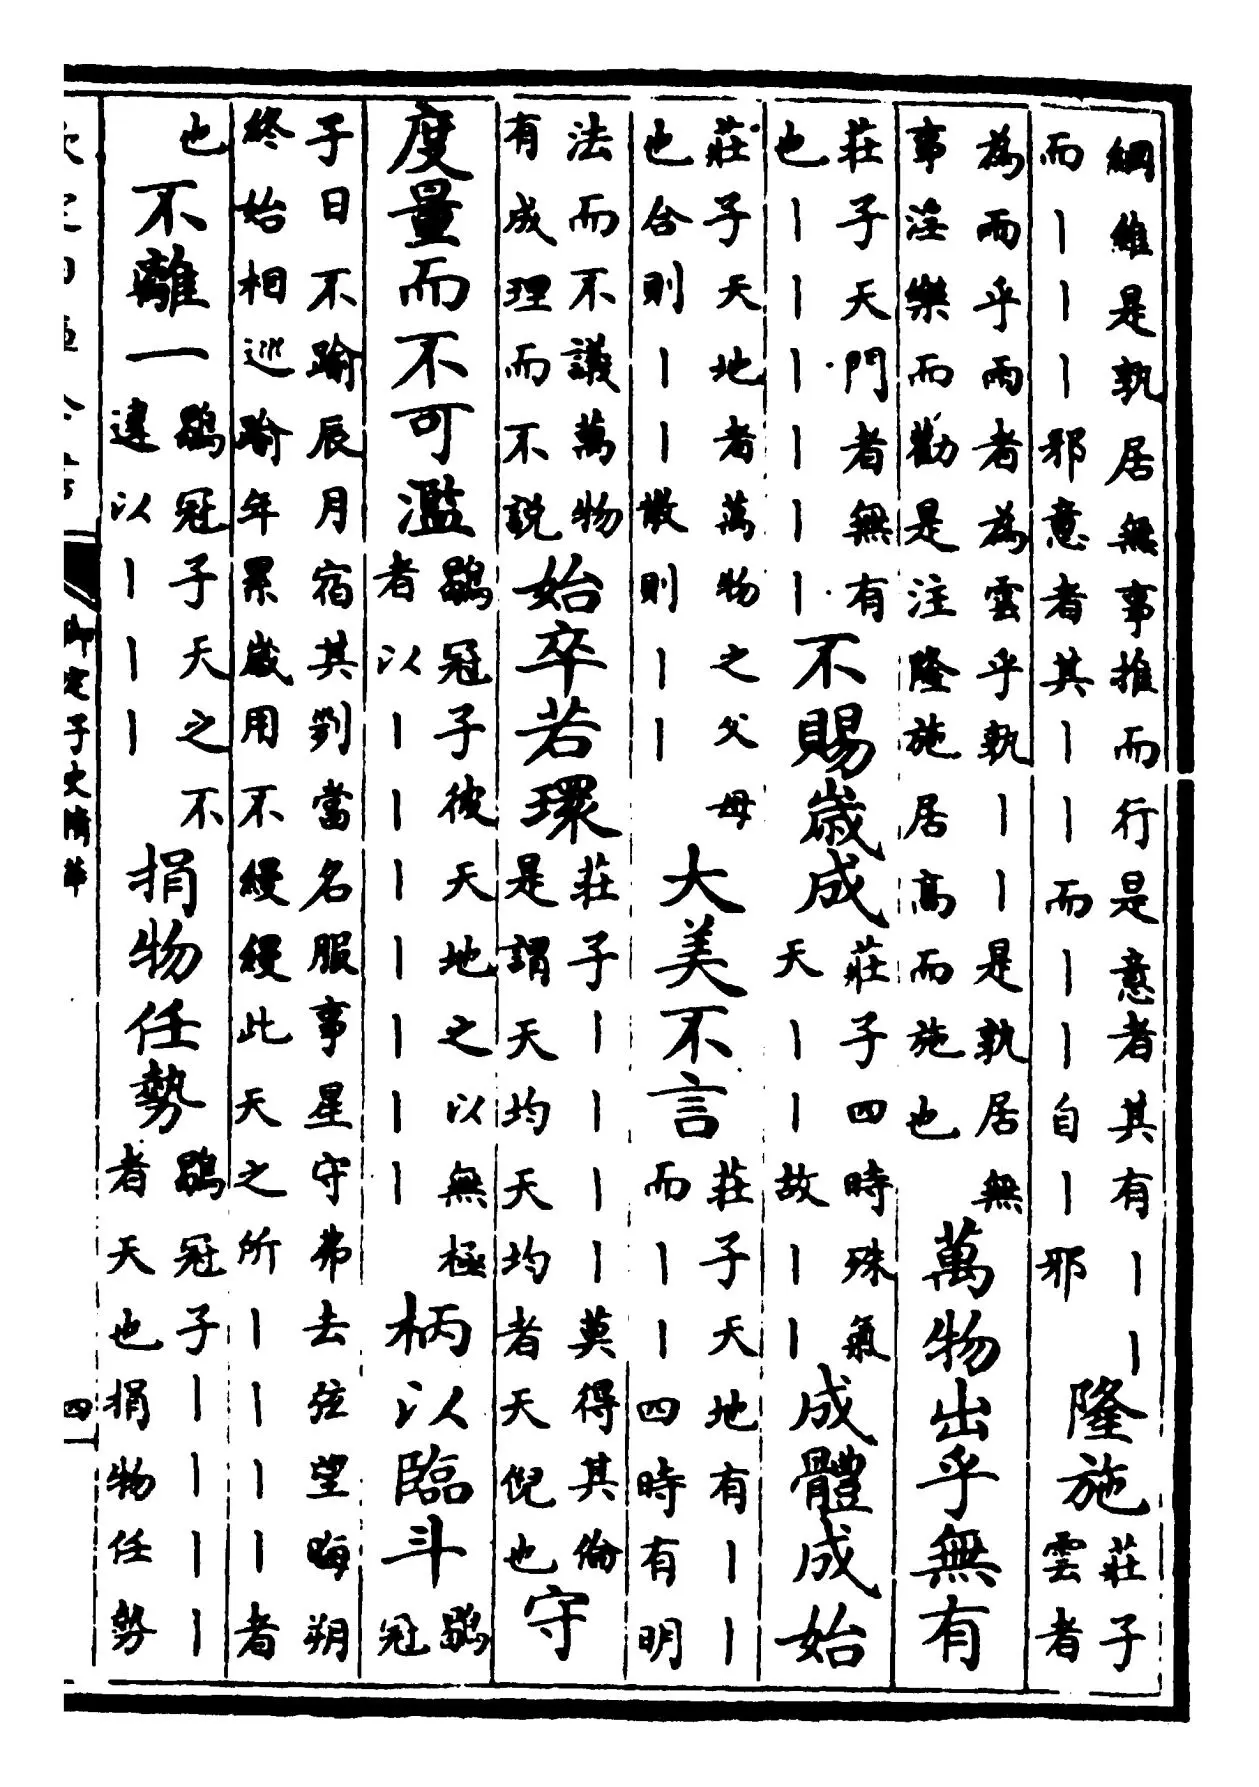 綱維是孰居無事推而行是意者其有丨丨
而丨丨丨邪意者其丨丨而丨丨自丨邪
隆施
莊子
雲者
為雨乎雨者為雲乎孰丨丨是孰居無
事淫樂而勸是注隆施居高而施也
萬物出乎無有
莊子天門者無有
也丨丨丨丨丨丨
不賜歲成
莊子四時殊氣
天丨丨故丨丨
成體成始
莊子天地者萬物之父母
也合則丨丨散則丨丨
大美不言
莊子天地有丨丨
而丨丨四時有明
法而不議萬物
有成理而不説
始卒若環
莊子丨丨丨丨莫得其倫
是謂天均天均者天倪也
守
度量而不可濫
鶡冠子彼天地之以無極
者以丨丨丨丨丨丨丨
柄以臨斗
鶡
冠
子日不踰辰月宿其列當名服事星守弗去弦望晦朔
終始相巡踰年累歲用不縵縵此天之所丨丨丨丨者
也
不離一
鶡冠子天之不
違以丨丨丨
捐物任勢
鶡冠子丨丨丨丨
者天也捐物任勢
御定子史精華
四